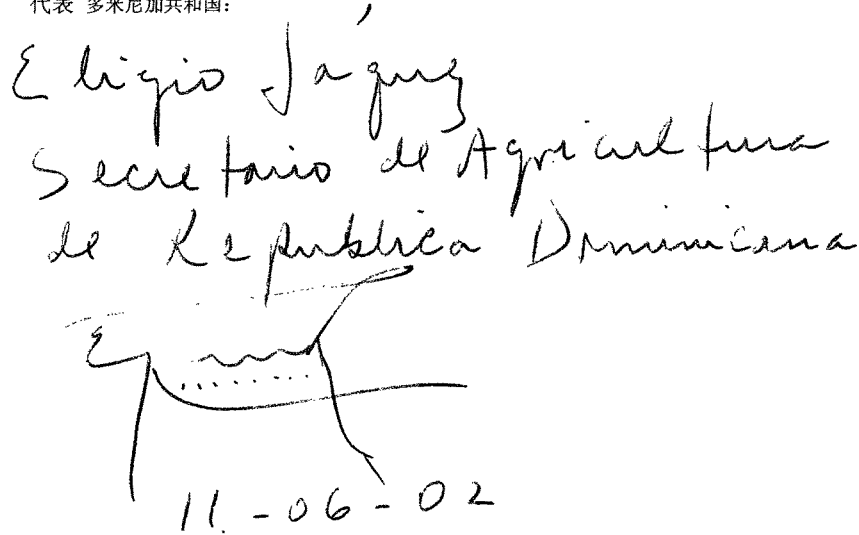 代表 多米尼加共和国:
Eligio Jáquez
Secretario de Agricultura
de Republica Dominicana
11-06-02